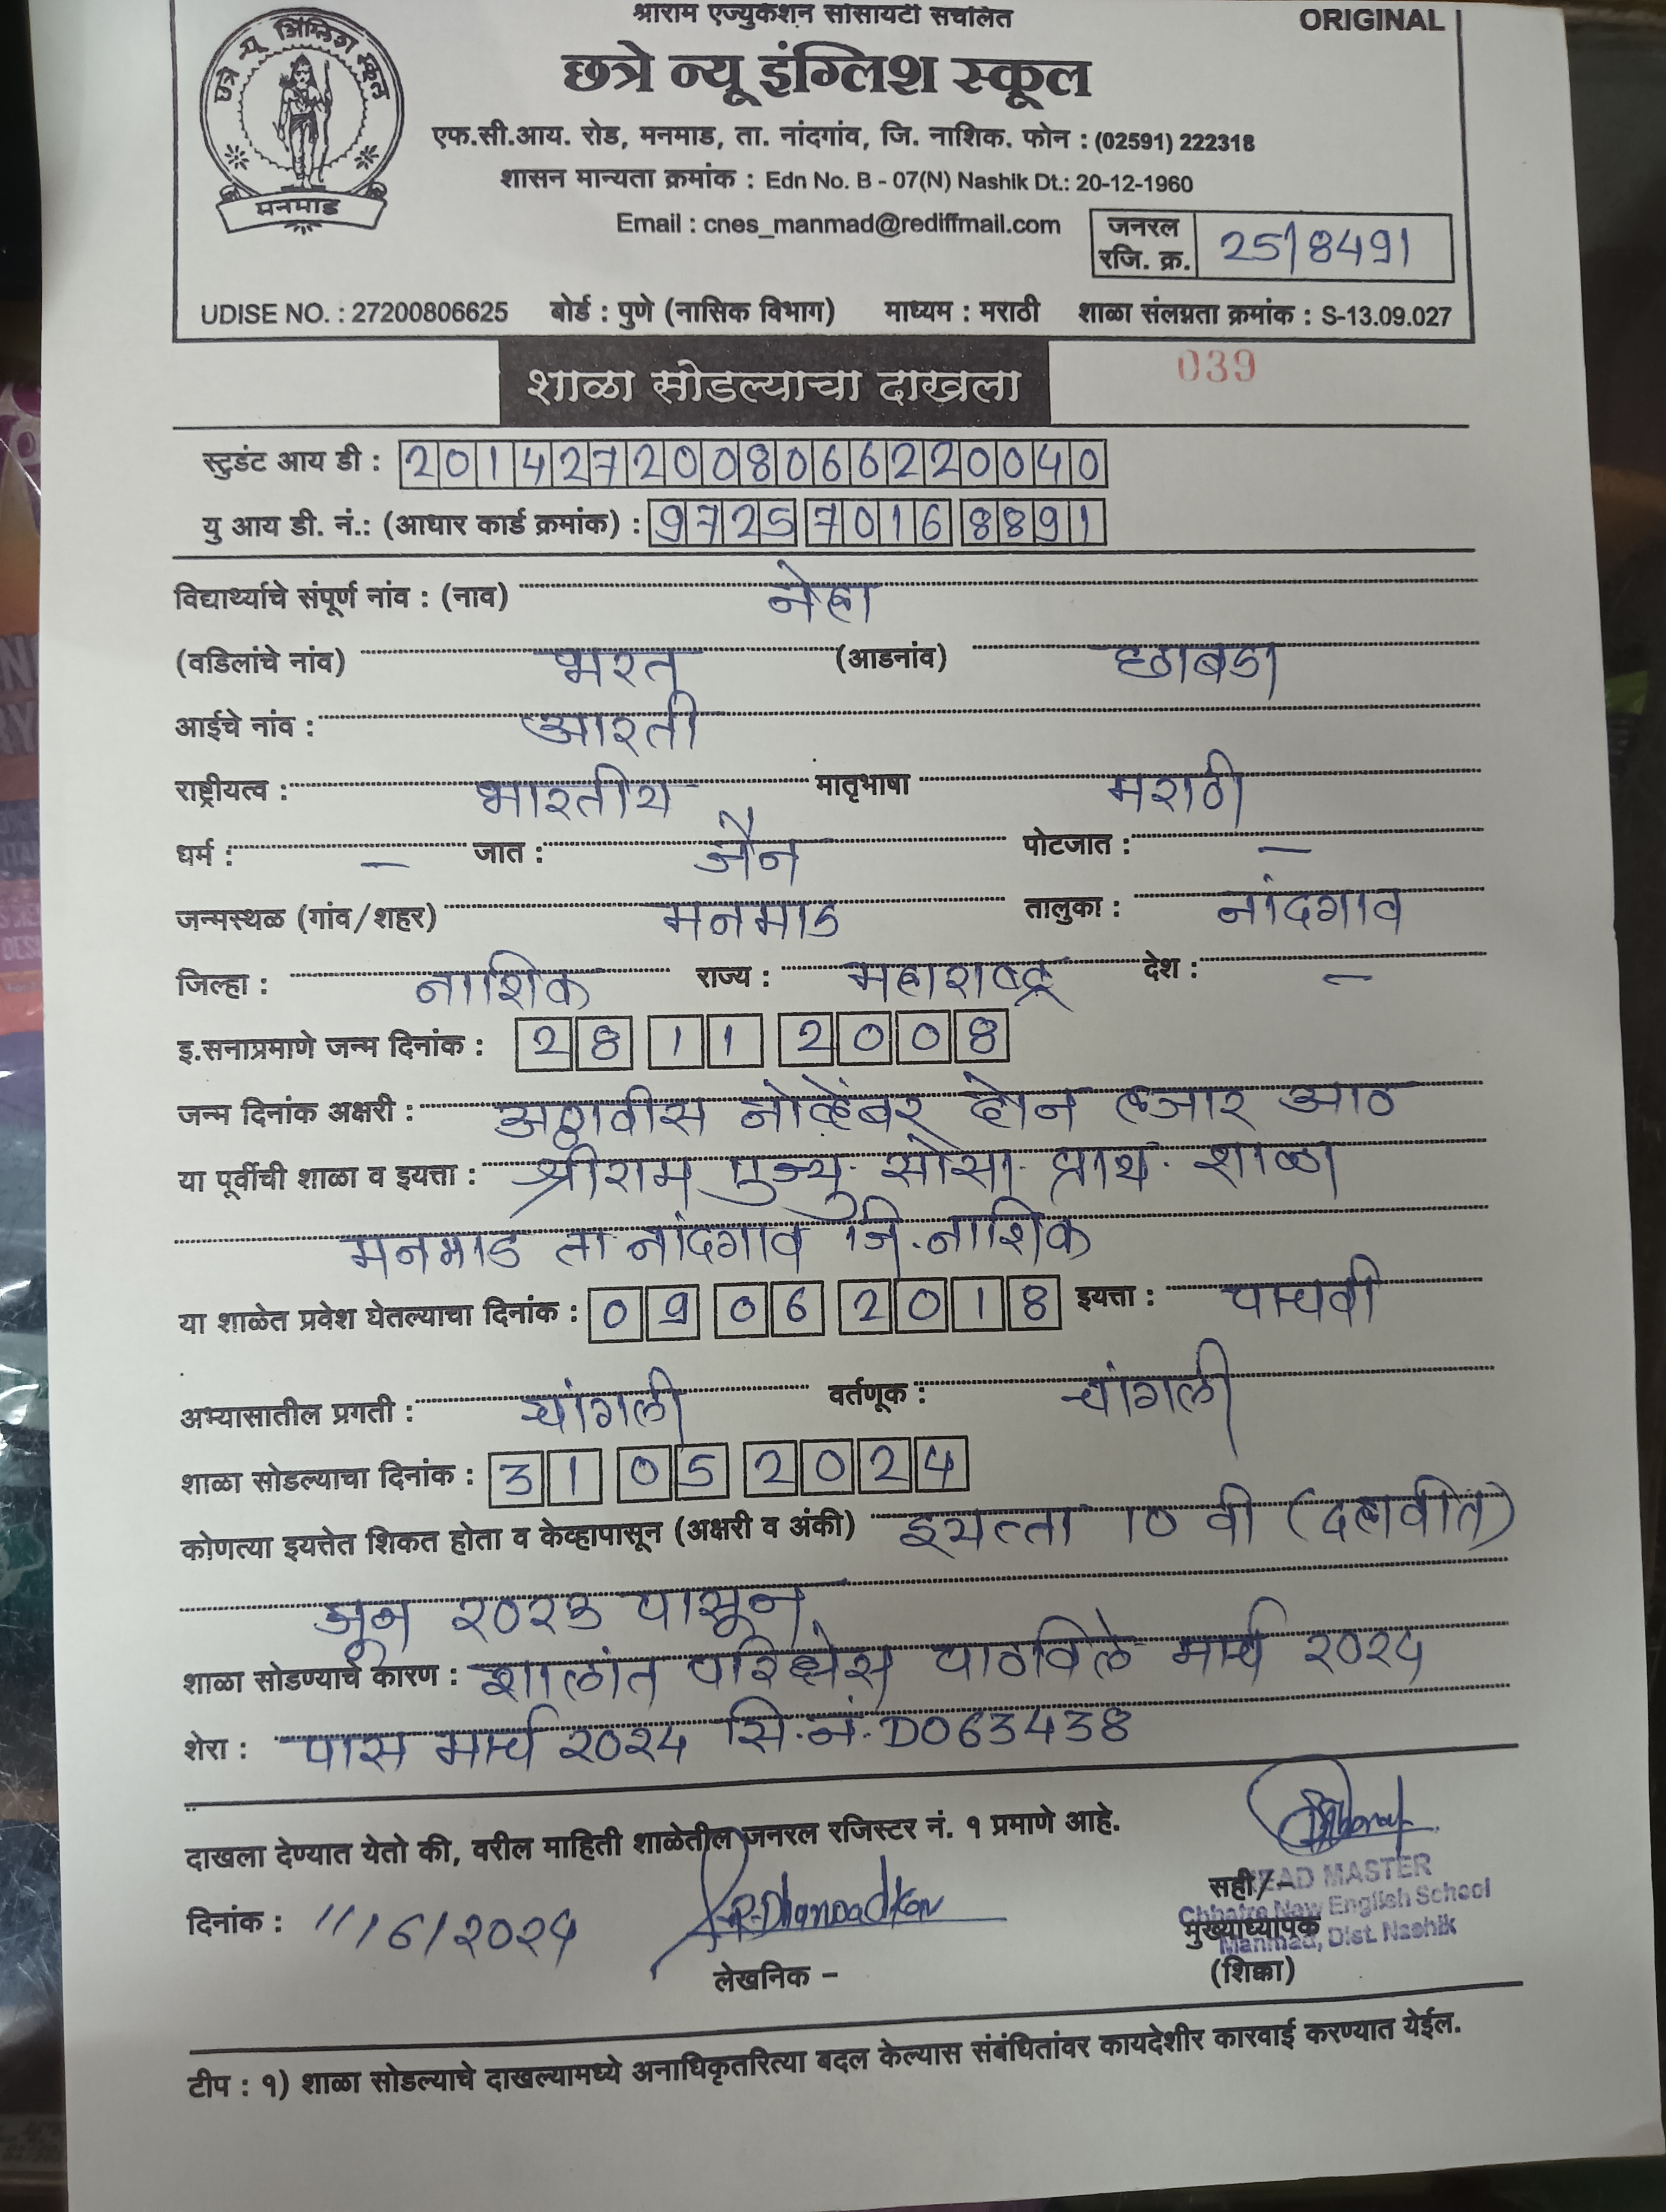 श्रीराम एज्युकेशन सोसायटी संचलित
ORIGINAL
छत्रे न्यू इंग्लिश स्कूल
छत्रे न्यू इंग्लिश स्कूल
मनमाड
एफ.सी.आय. रोड, मनमाड, ता. नांदगांव, जि. नाशिक. फोन : (02591) 222318
शासन मान्यता क्रमांक : Edn No. B - 07(N) Nashik Dt.: 20-12-1960
Email : cnes_manmad@rediffmail.com
जनरल रजि. क्र. 25/8491
UDISE NO. : 27200806625 बोर्ड : पुणे (नासिक विभाग) माध्यम : मराठी शाळा संलग्नता क्रमांक : S-13.09.027
शाळा सोडल्याचा दाखला
039
स्टुडंट आय डी : 2014272008066220040
यु आय डी. नं.: (आधार कार्ड क्रमांक) : 9725 7016 8891
विद्यार्थ्याचे संपूर्ण नांव : (नाव) नेहा
(वडिलांचे नांव) भरत (आडनांव) छाबडा
आईचे नांव : आरती
राष्ट्रीयत्व : भारतीय मातृभाषा मराठी
धर्म : — जात : जैन पोटजात : —
जन्मस्थळ (गांव/शहर) मनमाड तालुका : नांदगाव
जिल्हा : नाशिक राज्य : महाराष्ट्र देश : —
इ.सनाप्रमाणे जन्म दिनांक : 28 11 2008
जन्म दिनांक अक्षरी : अठ्ठावीस नोव्हेंबर दोन हजार आठ
या पूर्वीची शाळा व इयत्ता : श्रीराम एज्यु. सोसा. प्राथ. शाळा
मनमाड ता नांदगाव जि. नाशिक
या शाळेत प्रवेश घेतल्याचा दिनांक : 09 06 2018 इयत्ता : पाचवी
अभ्यासातील प्रगती : चांगली वर्तणूक : चांगली
शाळा सोडल्याचा दिनांक : 31 05 2024
कोणत्या इयत्तेत शिकत होता व केव्हापासून (अक्षरी व अंकी) इयत्ता 10 वी (दहावीत)
जून २०२३ पासून
शाळा सोडण्याचे कारण : शालांत परिक्षेस पाठविले मार्च २०२४
शेरा : पास मार्च २०२४ सि.नं. D063438
दाखला देण्यात येतो की, वरील माहिती शाळेतील जनरल रजिस्टर नं. १ प्रमाणे आहे.
दिनांक : 11/6/2024
लेखनिक –
सही/–
मुख्याध्यापक
(शिक्का)
HEAD MASTER
Chhatre New English School
Manmad, Dist. Nashik
टीप : १) शाळा सोडल्याचे दाखल्यामध्ये अनाधिकृतरित्या बदल केल्यास संबंधितांवर कायदेशीर कारवाई करण्यात येईल.